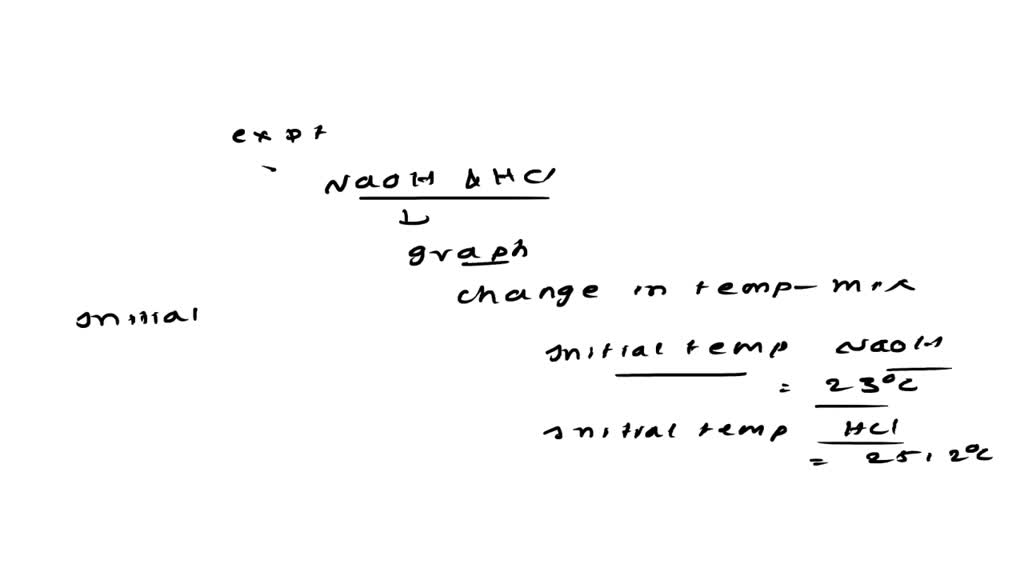 expt
NaOH & HCl
graph
change in temp - mix
Initial
Initial temp NaOH
= 23°C
Initial temp HCl
= 25.2°C